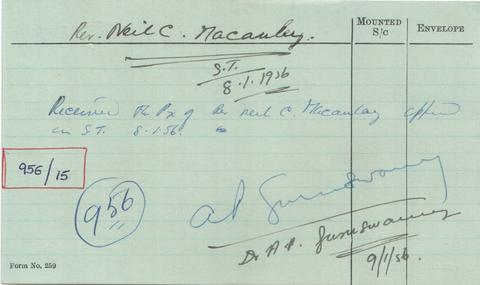 MOUNTED S/C
ENVELOPE
Rev. Neil C. Macauley.
S.T.
8.1.1956
Received the Px of Rev Neil C. Macaulay
on S.T. 8-1-56.
956/15
956
Dr A.P. Guruswamy
9/1/56.
Form No. 259